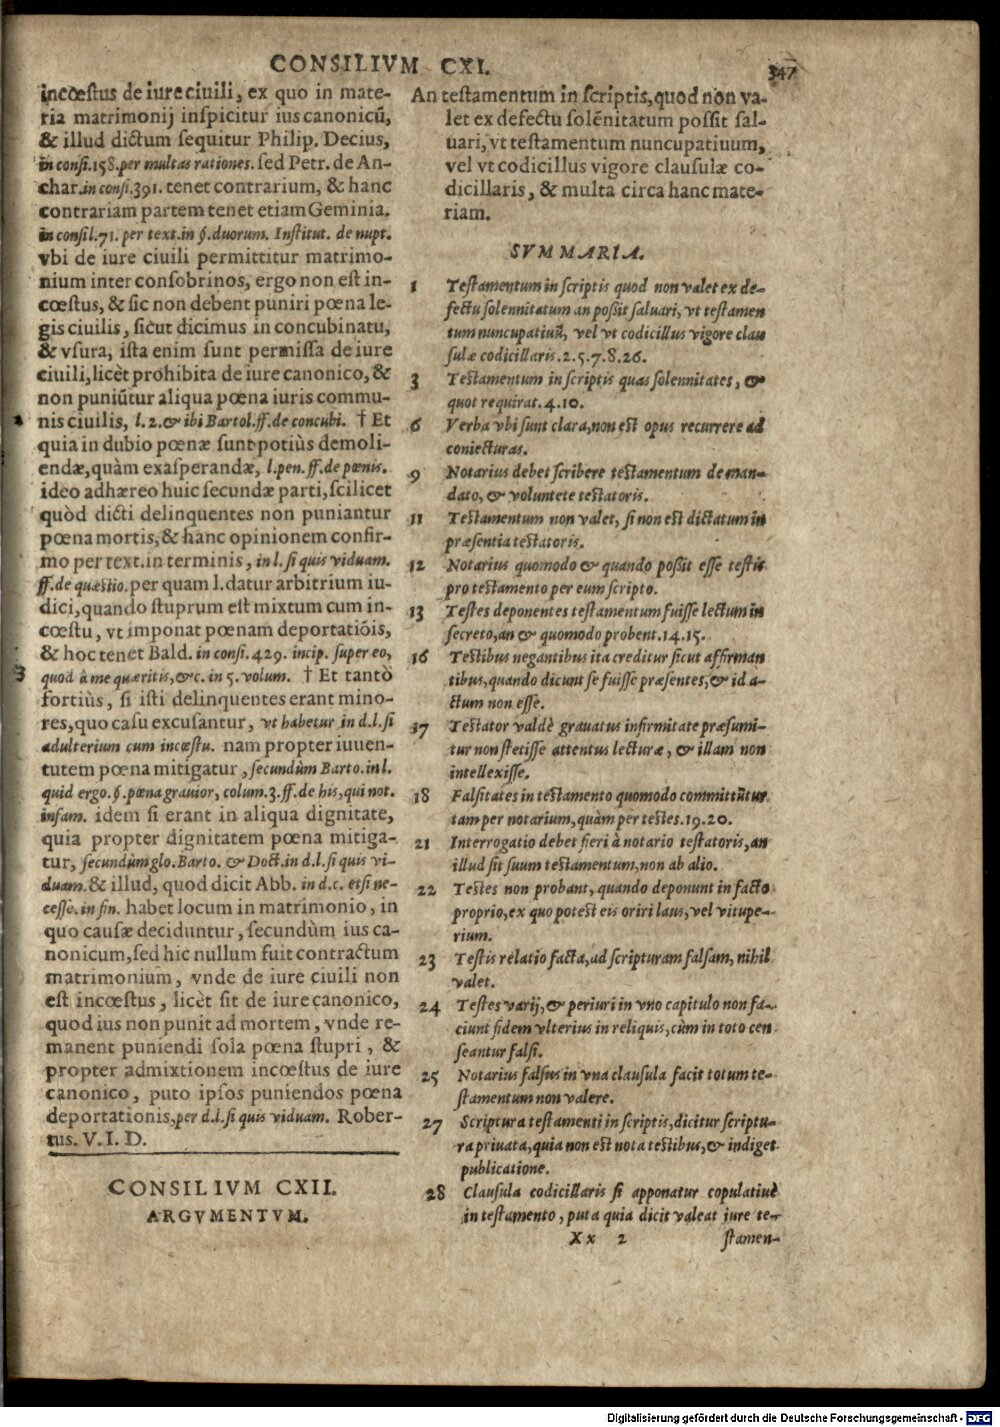 CONSILIVM CXI.
347
incœstus de iure ciuili, ex quo in mate-
ria matrimonij inspicitur ius canonicũ,
& illud dictum sequitur Philip. Decius,
in consi.158.per multas rationes. sed Petr. de An-
char.in consi.391. tenet contrarium, & hanc
contrariam partem tenet etiam Geminia.
in consil.71. per text.in §.duorum. Institut. de nupt.
vbi de iure ciuili permittitur matrimo-
nium inter consobrinos, ergo non est in-
cœstus, & sic non debent puniri pœna le-
gis ciuilis, sicut dicimus in concubinatu,
& vsura, ista enim sunt permissa de iure
ciuili, licèt prohibita de iure canonico, &
non puniũtur aliqua pœna iuris commu-
nis ciuilis, l.2.& ibi Bartol.ff.de concubi. † Et
quia in dubio pœnæ sunt potiùs demoli-
endæ, quàm exasperandæ, l.pen.ff.de pœnis.
ideo adhæreo huic secundæ parti, scilicet
quòd dicti delinquentes non puniantur
pœna mortis, & hanc opinionem confir-
mo per text.in terminis, in l.si quis viduam.
ff.de quæstio. per quam l.datur arbitrium iu-
dici, quando stuprum est mixtum cum in-
cœstu, vt imponat pœnam deportatiõis,
& hoc tenet Bald. in consi.429. incip. super eo,
3 quod à me quæritis,&c. in 5. volum. † Et tantò
fortiùs, si isti delinquentes erant mino-
res, quo casu excusantur, vt habetur in d.l.si
adulterium cum incœstu. nam propter iuuen-
tutem pœna mitigatur, secundùm Barto.in l.
quid ergo.§.pœna grauior, colum.3.ff.de his, qui not.
infam. idem si erant in aliqua dignitate,
quia propter dignitatem pœna mitiga-
tur, secundùm glo.Barto. & Doct.in d.l.si quis vi-
duam. & illud, quod dicit Abb. in d.c. etsi ne-
cesse.in fin. habet locum in matrimonio, in
quo causæ deciduntur, secundùm ius ca-
nonicum, sed hic nullum fuit contractum
matrimonium, vnde de iure ciuili non
est incœstus, licèt sit de iure canonico,
quod ius non punit ad mortem, vnde re-
manent puniendi sola pœna stupri, &
propter admixtionem incœstus de iure
canonico, puto ipsos puniendos pœna
deportationis, per d.l.si quis viduam. Rober-
tus. V. I. D.
CONSILIVM CXII.
ARGVMENTVM.
An testamentum in scriptis, quod non va-
let ex defectu solẽnitatum possit sal-
uari, vt testamentum nuncupatiuum,
vel vt codicillus vigore clausulæ co-
dicillaris, & multa circa hanc mate-
riam.
SVMMARIA.
1 Testamentum in scriptis quod non valet ex de-
fectu solennitatum an possit saluari, vt testamen
tum nuncupatiuũ, vel vt codicillus vigore clau
sulæ codicillaris.2.5.7.8.26.
3 Testamentum in scriptis quas solennitates, &
quot requirat.4.10.
6 Verba vbi sunt clara, non est opus recurrere ad
coniecturas.
9 Notarius debet scribere testamentum de man-
dato, & voluntete testatoris.
11 Testamentum non valet, si non est dictatum in
præsentia testatoris.
12 Notarius quomodo & quando possit esse testis
pro testamento per eum scripto.
13 Testes deponentes testamentum fuisse lectum in
secreto, an & quomodo probent.14.15.
16 Testibus negantibus ita creditur sicut affirman
tibus, quando dicunt se fuisse præsentes, & id a-
ctum non esse.
17 Testator valdè grauatus infirmitate præsumi-
tur non stetisse attentus lecturæ, & illam non
intellexisse.
18 Falsitates in testamento quomodo committũtur
tam per notarium, quàm per testes.19.20.
21 Interrogatio debet fieri à notario testatoris, an
illud sit suum testamentum, non ab alio.
22 Testes non probant, quando deponunt in facto
proprio, ex quo potest eis oriri laus, vel vitupe-
rium.
23 Testis relatio facta, ad scripturam falsam, nihil
valet.
24 Testes varij, & periuri in vno capitulo non fa-
ciunt fidem vlterius in reliquis, cùm in toto cen
seantur falsi.
25 Notarius falsus in vna clausula facit totum te-
stamentum non valere.
27 Scriptura testamenti in scriptis, dicitur scriptu-
ra priuata, quia non est nota testibus, & indiget
publicatione.
28 Clausula codicillaris si apponatur copulatiuè
in testamento, puta quia dicit valeat iure te-
Xx 2 stamen-
Digitalisierung gefördert durch die Deutsche Forschungsgemeinschaft - DFG